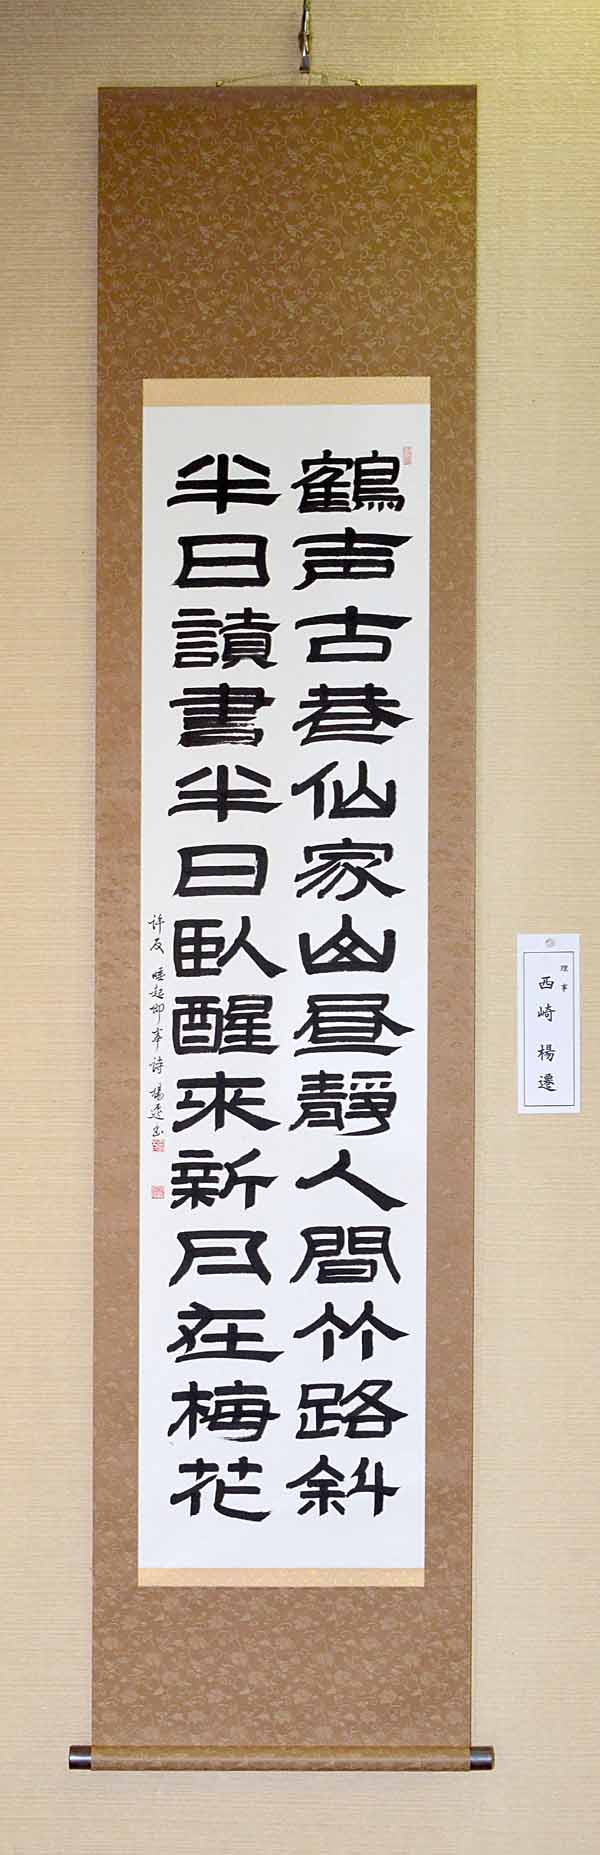 鶴声古巷仙家山昼静人間竹路斜
半日讀書半日臥醒来新月在梅花
許友 睡起即事詩 楊遷書
理事
西崎楊遷